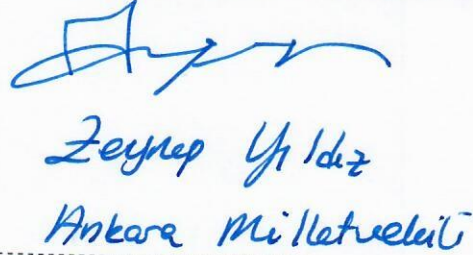 Zeynep Yıldız
Ankara Milletvekili